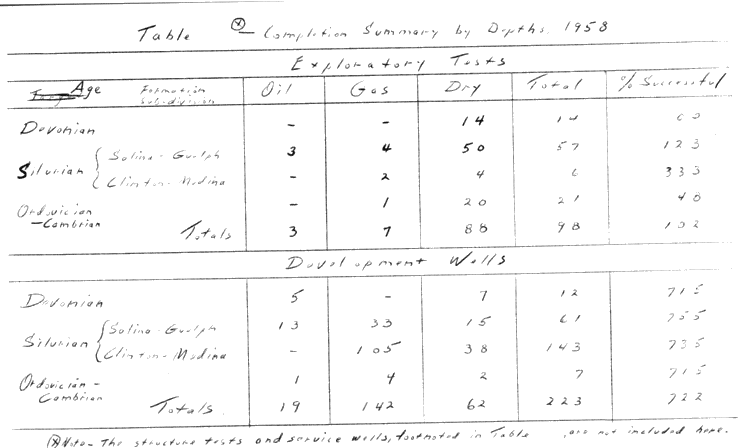 Table ⊗— Completion Summary by Depths, 1958
Exploratory Tests
Age Formation Subdivision Oil Gas Dry Total % Successful
Devonian - - 14 14
Silurian { Salina-Guelph 3 4 50 57 12 3
Clinton-Medina - 2 4 6 33 3
Ordovician - Cambrian - 1 20 21 4 8
Totals 3 7 88 98 10 2
Development Wells
Devonian 5 - 7 12 71 5
Silurian { Salina-Guelph 13 33 15 61 75 5
Clinton-Medina - 105 38 143 73 5
Ordovician - Cambrian 1 4 2 7 71 5
Totals 19 142 62 223 72 2
⊗ Note - The structure tests and service wells, footnoted in Table , are not included here.